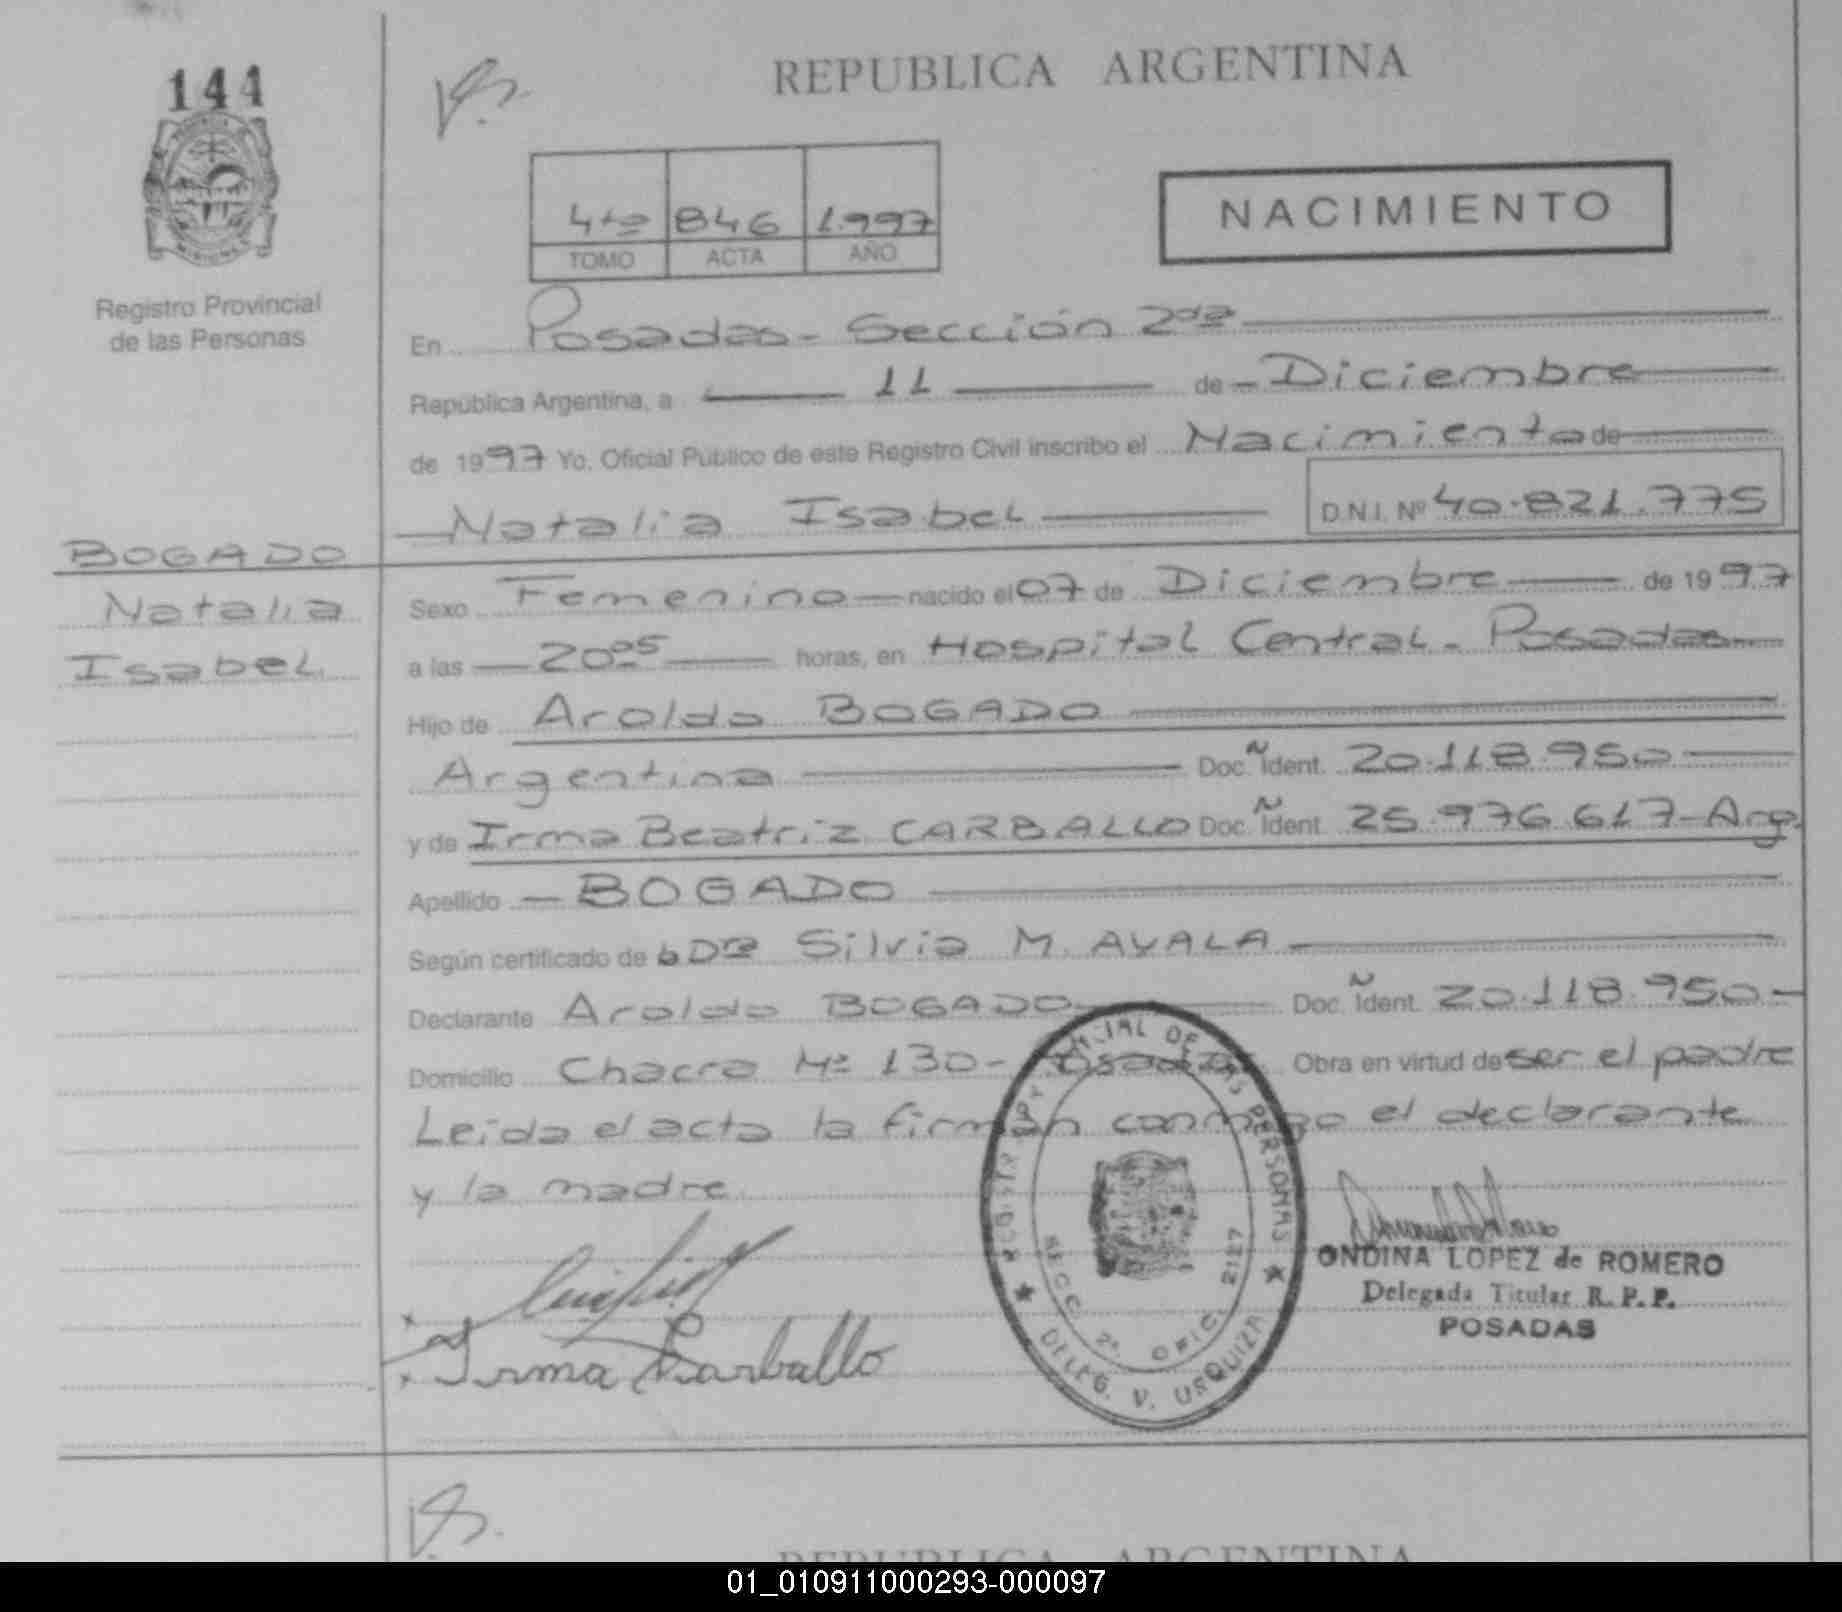 144
REPUBLICA ARGENTINA
4to 846 1.997
TOMO ACTA AÑO
NACIMIENTO
Registro Provincial
de las Personas
En Posadas - Sección 2da
República Argentina, a 11 de Diciembre
de 1997 Yo, Oficial Público de este Registro Civil inscribo el Nacimiento de
Natalia Isabel D.N.I. Nº 40.821.775
BOGADO
Natalia
Isabel
Sexo Femenino nacido el 07 de Diciembre de 1997
a las 20:05 horas, en Hospital Central - Posadas
Hijo de Aroldo BOGADO
Argentina Doc. Ñ Ident. 20.118.950
y de Irma Beatriz CARBALLO Doc. Ñ Ident. 25.976.617 - Arg.
Apellido BOGADO
Según certificado de Dra Silvia M. AYALA
Declarante Aroldo BOGADO Doc. Ñ Ident. 20.118.950
Domicilio Chacra Nº 130 - Posadas Obra en virtud de ser el padre
Leida el acta la firman conmigo el declarante
y la madre
Irma Carballo
REGISTRO PROVINCIAL DE LAS PERSONAS
SECC. 2ª OFIC. 2127
DELEG. V. URQUIZA
ONDINA LOPEZ de ROMERO
Delegada Titular R. P. P.
POSADAS
REPUBLICA ARGENTINA
01_010911000293-000097